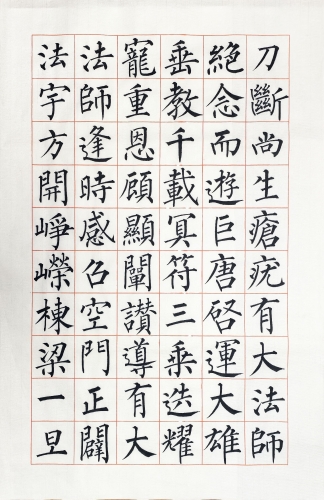 刀斷尚生瘡疣有大法師
絶念而遊巨唐啓運大雄
垂教千載冥符三乘迭耀
寵重恩顧顯闡讚導有大
法師逢時感召空門正闢
法宇方開崢嶸棟梁一旦